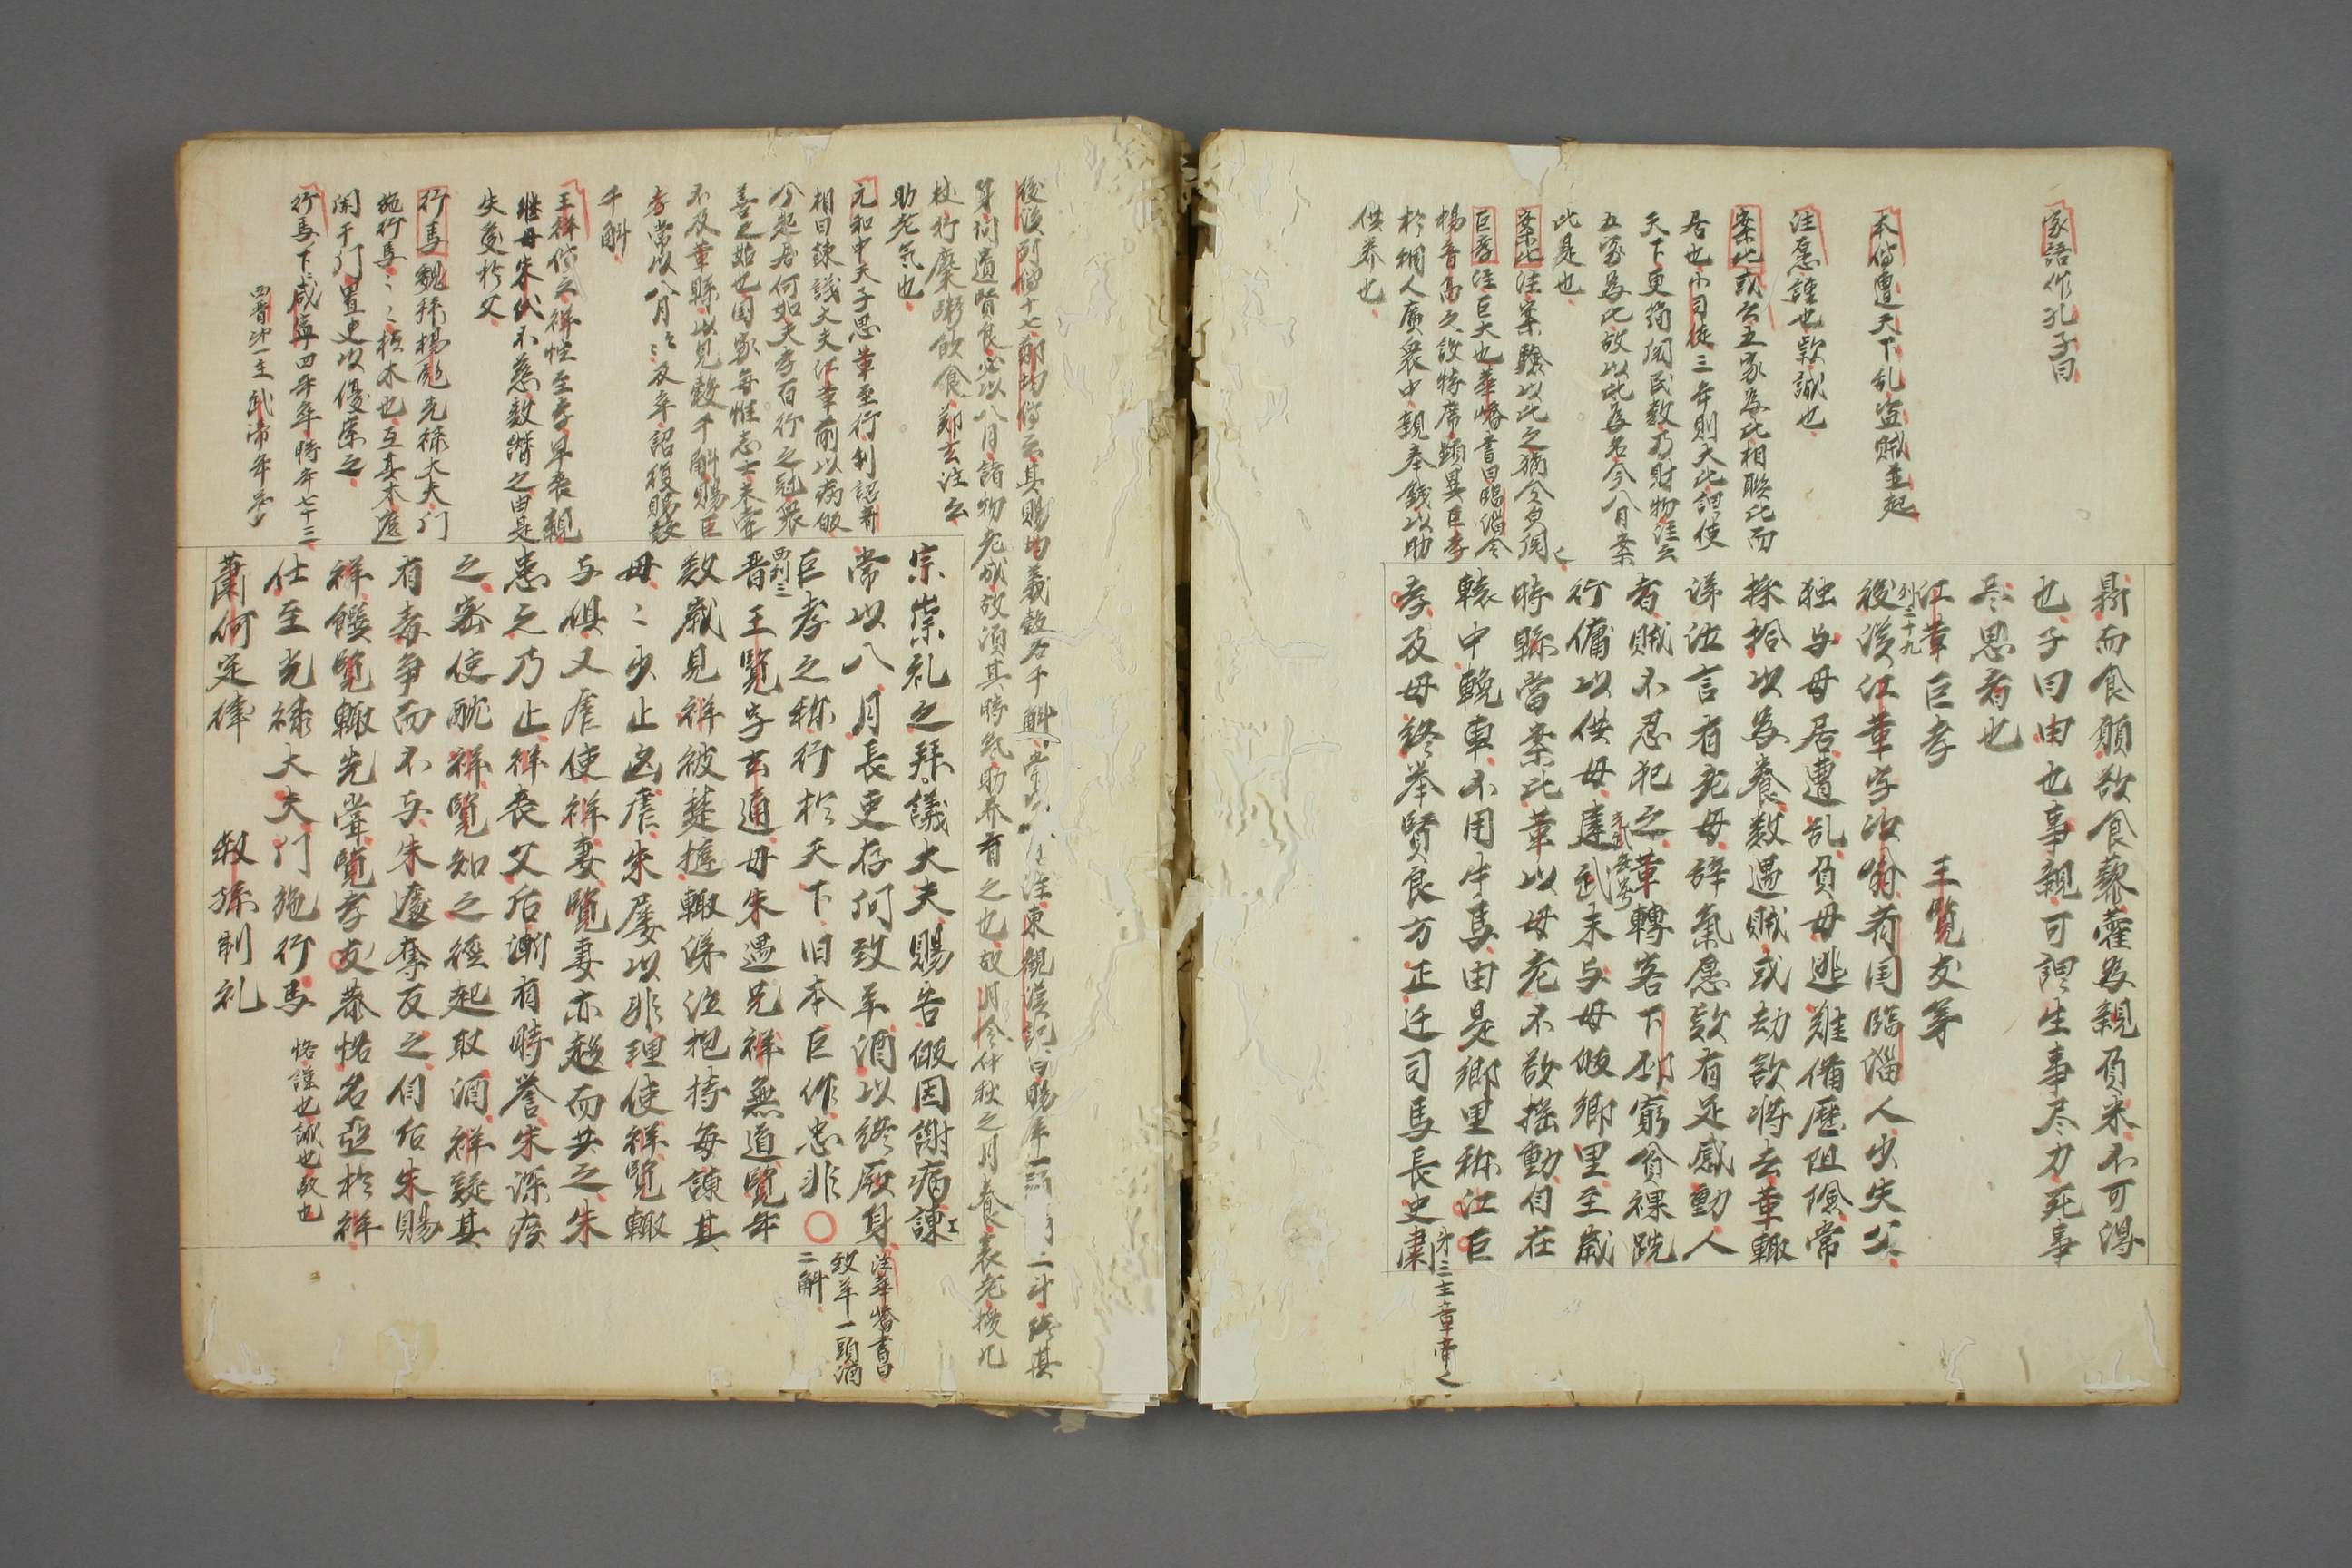 家語作孔子曰
本傳遭天下乱盗賊並起
注愿謹也欵誠也
案比説云五家為比相聯比而
居也小司徒三年則大比謂使
天下更簡閲民数乃財物注云
五家為比故以比為名今八月案
比是也
案比注案驗以比之猶今貞閲〻
巨孝注巨大也華嶠書曰臨淄令
楊音高之設特席顕異巨孝
於稠人廣衆中親奉錢以助
供養也
鼎而食願欲食藜藿為親負米不可得
也子曰由也事親可謂生事尽力死事
尽思者也
江革巨孝 王覽友等
列二十九
後漢江革字次翁斉国臨淄人少失父
独与母居遭乱負母逃難備歴阻険常
採拾以為養数遇賊或劫欲将去革輙
涕泣言有老母辞氣愿欵有足感動人
者賊不忍犯之革轉客下邳窮貧裸跣
行傭以供母建武末与母皈郷里至歳
光武年号
時縣當案比革以母老不欲揺動自在
轅中輓車不用牛馬由是郷里称江巨
孝及母終挙賢良方正迁司馬長史肅
第三主章帝之
後漢列傳十七鄭均傳云其賜均義穀各千斛常注東觀漢記曰賜羊一頭二斗終其
身問遺賢良必以八月諸物老成故順其時氣助养育之也故月令仲秋之月養衰老授几
杖行糜粥飲食鄭玄注云
助老氣也
元和中天子思革至行制詔斉
相曰諌議大夫江革前以病皈
今起居何如夫孝百行之冠衆
善之始也国家毎惟志士未甞
不及革縣以見穀千斛賜巨
孝常以八月
千斛
王祥傳云祥性至孝早喪親
継母朱氏不慈数譖之由是
失愛於父
行馬魏拜楊彪光禄大夫門
施行馬〻〻植木也互其木遮
闌于門置吏以優崇之
行馬下咸寧四年卒時年七十三
西晋第一主武帝年号
宗崇礼之拜儀大夫賜告皈因謝病諌
常以八月長吏存問致羊酒以終厥身
巨孝之称行於天下旧本巨作忠非
注華嶠書曰
致羊一頭酒
二斛
西列三
晋王覽字玄通母朱遇兄祥無道覽年
数歳見祥被楚撻輙涕泣抱持毎諌其
母〻少止凶虐朱屡以非理使祥覽輙
与倶又虐使祥妻覽妻亦趍而共之朱
患之乃止祥喪父后漸有時誉朱深疾
之密使酖祥覽知之徑起取酒祥疑其
有毒争而不与朱遽奪反之自后朱賜
祥饌覽輙先甞覽孝友恭恪名亞於祥
仕至光禄大夫門施行馬
恪謹也誠也敬也
蕭何定律 叔孫制礼